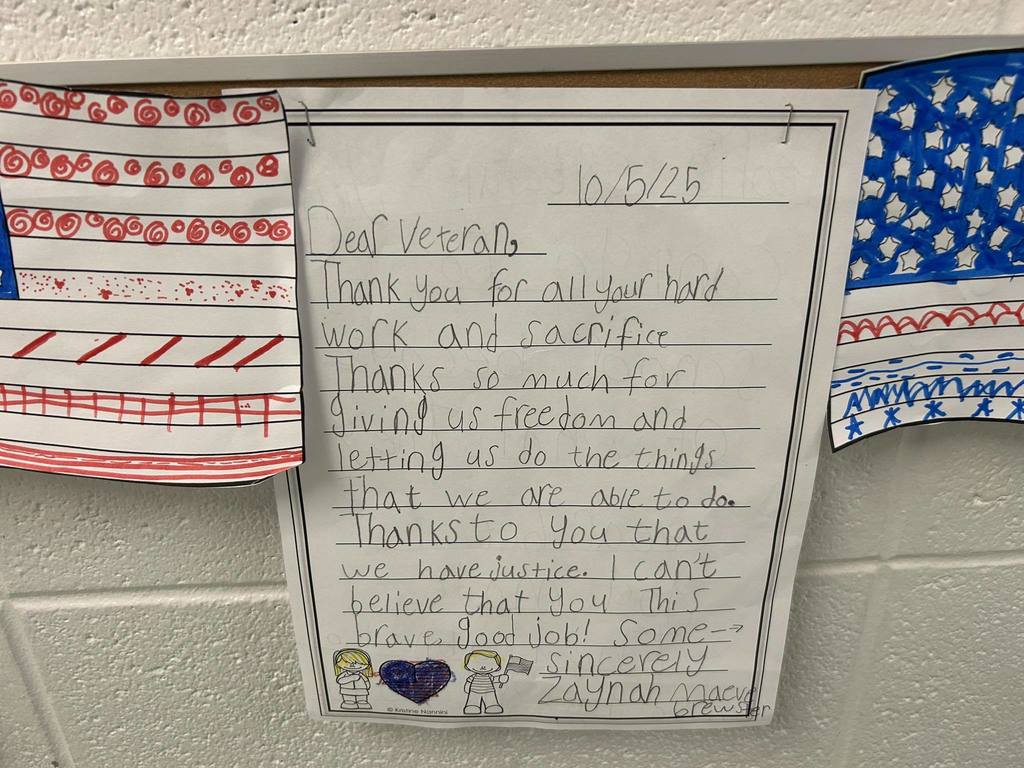 10/5/25
Dear Veteran,
Thank you for all your hard
work and sacrifice
Thanks so much for
giving us freedom and
letting us do the things
that we are able to do.
Thanks to you that
we have justice. I can't
believe that you This
brave, good job! Some→
sincerely
Zaynah Maeve
brewster
© Kristine Nannini